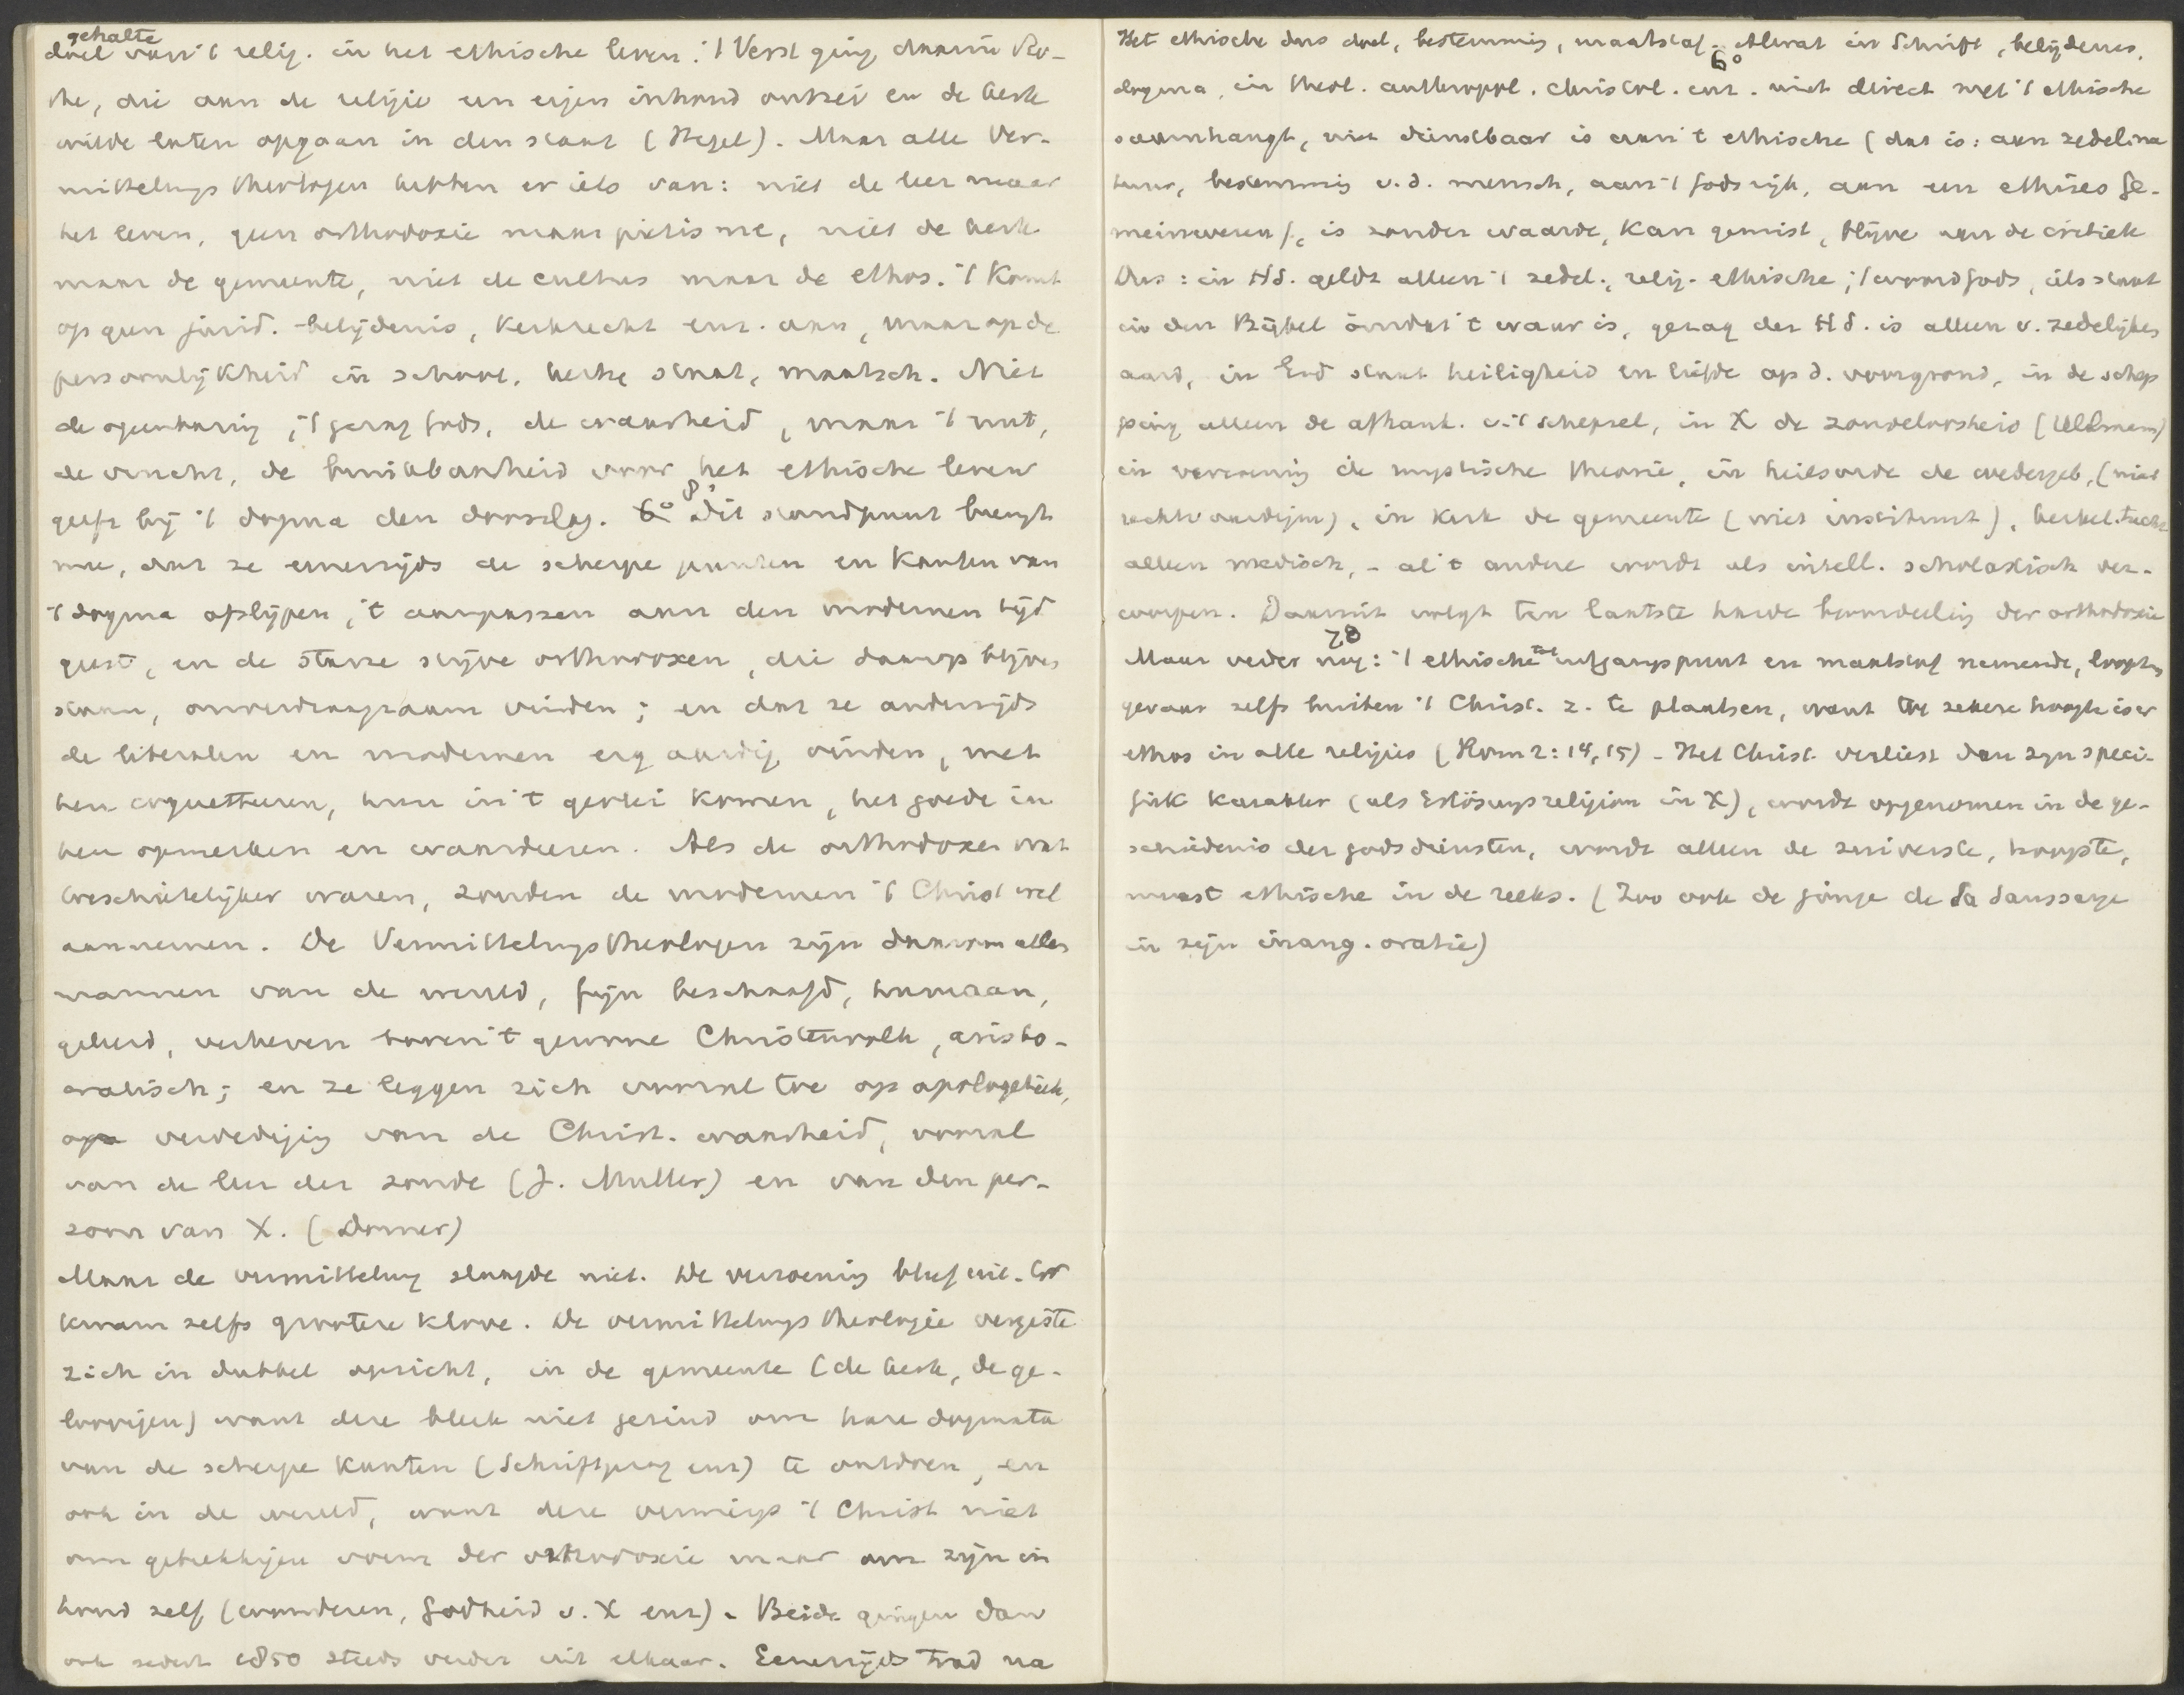 gehalte
doel van 't relig. in het ethische leven. 't Verst ging daarin Ro-
the, die aan de religie een eigen inhoud ontzei en de kerk
wilde laten opgaan in den staat (Hegel). Maar alle Ver-
mittelungstheologen hebben er iets van: niet de leer maar
het leven, geen orthodoxie maar pietisme, niet de kerk
maar de gemeente, niet de cultus maar de ethos. 't Komt
op geen jurid. belijdenis, Kerkrecht enz. aan, maar op de
persoonlijkheid in school, kerk, staat, maatsch. Niet
de openbaring, 't gezag Gods, de waarheid, maar 't nut,
de vrucht, de bruikbaarheid voor het ethische leven
geeft bij 't dogma den doorslag. 8° Dit standpunt brengt
mee, dat ze eenerzijds de scherpe punten en Kanten van
't dogma afslijpen, 't aanpassen aan den modernen tijd
geest, en de starre stijve orthodoxen, die daarop blijven
staan, onverdraagzaam vinden; en dat ze anderzijds
de liberalen en modernen erg aardig vinden, met
hen coquetteeren, hun in 't gevlei komen, het goede in
hen opmerken en waardeeren. Als de orthodoxen wat
toeschietelijker waren, zouden de modernen 't Christ wel
aannemen. De Vermittelungstheologen zijn daarom allen
mannen van de wereld, fijn beschaafd, humaan,
geleerd, verheven boven 't gewone Christenvolk, aristo-
cratisch; en ze leggen zich vooral toe op apologetiek,
op verdediging van de Christ. waarheid, vooral
van de leer der zonde (J. Muller) en van den per-
zoon van X. (Dorner)
Maar de vermittelung slaagde niet. De verzoening bleef uit. Er
kwam zelfs grootere klove. De vermittelungstheologie vergiste
zich in dubbel opzicht, in de gemeente (de kerk, de ge-
loovigen) want deze bleek niet gezind om hare dogmata
van de scherpe Kanten (Schriftgezag enz) te ontdoen, en
ook in de wereld, want deze verwierp 't Christ niet
om gebrekkigen vorm der orthodoxie maar om zijn in
houd zelf (wonderen, Godheid v. X enz). Beide gingen dan
ook sedert 1850 steeds verder uit elkaar. Eenerzijds trad na
Het ethische dus doel, bestemming, maatstaf. 6° Alwat in Schrift, belijdenis,
dogma, in theol. anthropol. christol. enz. niet direct met 't ethische
saamhangt, niet dienstbaar is aan 't ethische (dat is: aan zedel. na
tuur, bestemming v. d. mensch, aan 't Godsrijk, aan een ethisces Ge-
meinwesen), is zonder waarde, Kan gemist, blijve aan de critiek
Dus: in HS. geldt alleen 't zedel., relig-ethische; 't woord Gods, iets staat
in den Bijbel omdat 't waar is, gezag der HS. is alleen v. zedelijken
aard, in God staat heiligheid en liefde op d. voorgrond, in de schep
ping alleen de afhank. v. 't schepsel, in X de zondeloosheid (Ullmann)
in verzoening de mystische theorie, in heilsorde de wedergeb. (niet
rechtvaardigm), in Kerk de gemeente (niet instituut), kerkel. tucht
alleen medisch, - al 't andere wordt als intell. scholastisch ver-
worpen. Daaruit volgt ten laatste harde beoordeeling der orthodoxie
Maar verder nog: 7° 't ethische tot uitgangspunt en maatstaf nemende, loopt men
gevaar zelfs buiten 't Christ. z. te plaatsen, want tot zekere hoogte is er
ethos in alle religies (Rom 2:14, 15) - Het Christ. verliest dan zijn speci-
fiek karakter (als Erlösungsreligion in X), wordt opgenomen in de ge-
schiedenis der godsdiensten, wordt alleen de zuiverste, hoogste,
meest ethische in de reeks. (Zoo ook de jonge de la Saussaye
in zijn inaug. oratie)